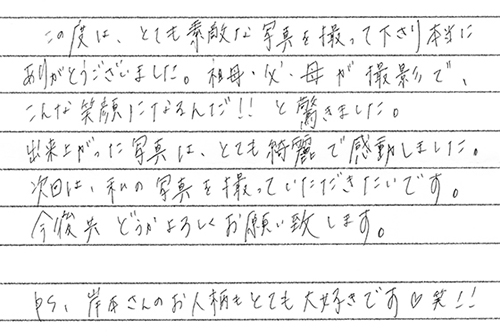 この度は、とても素敵な写真を撮って下さり本当に
ありがとうございました。祖母・父・母が撮影で、
こんな笑顔になるんだ!!と驚きました。
出来上がった写真は、とても綺麗で感動しました。
次回は、私の写真を撮っていただきたいです。
今後共どうかよろしくお願い致します。
PS、岸本さんのお人柄もとても大好きです♡笑!!